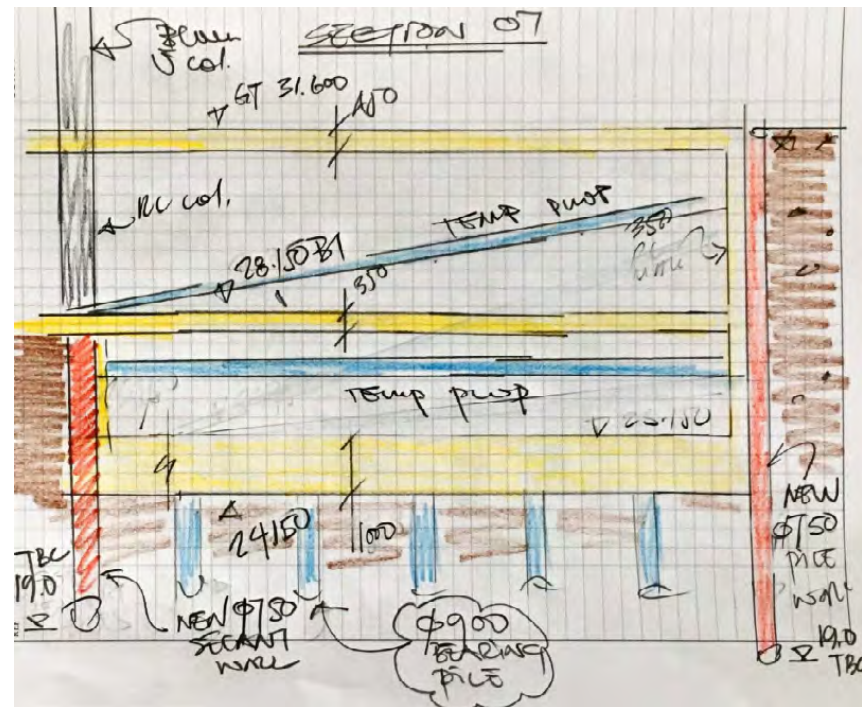 SECTION 07
col.
GT 31.600
450
RC col.
TEMP PROP
28.150 B1
350
350
RC
TEMP PROP
25.150
24150
1000
TBC
19.0
NEW Φ750
SECANT
WALL
Φ900
BEARING
PILE
NEW
Φ750
PILE
WALL
19.0
TBC